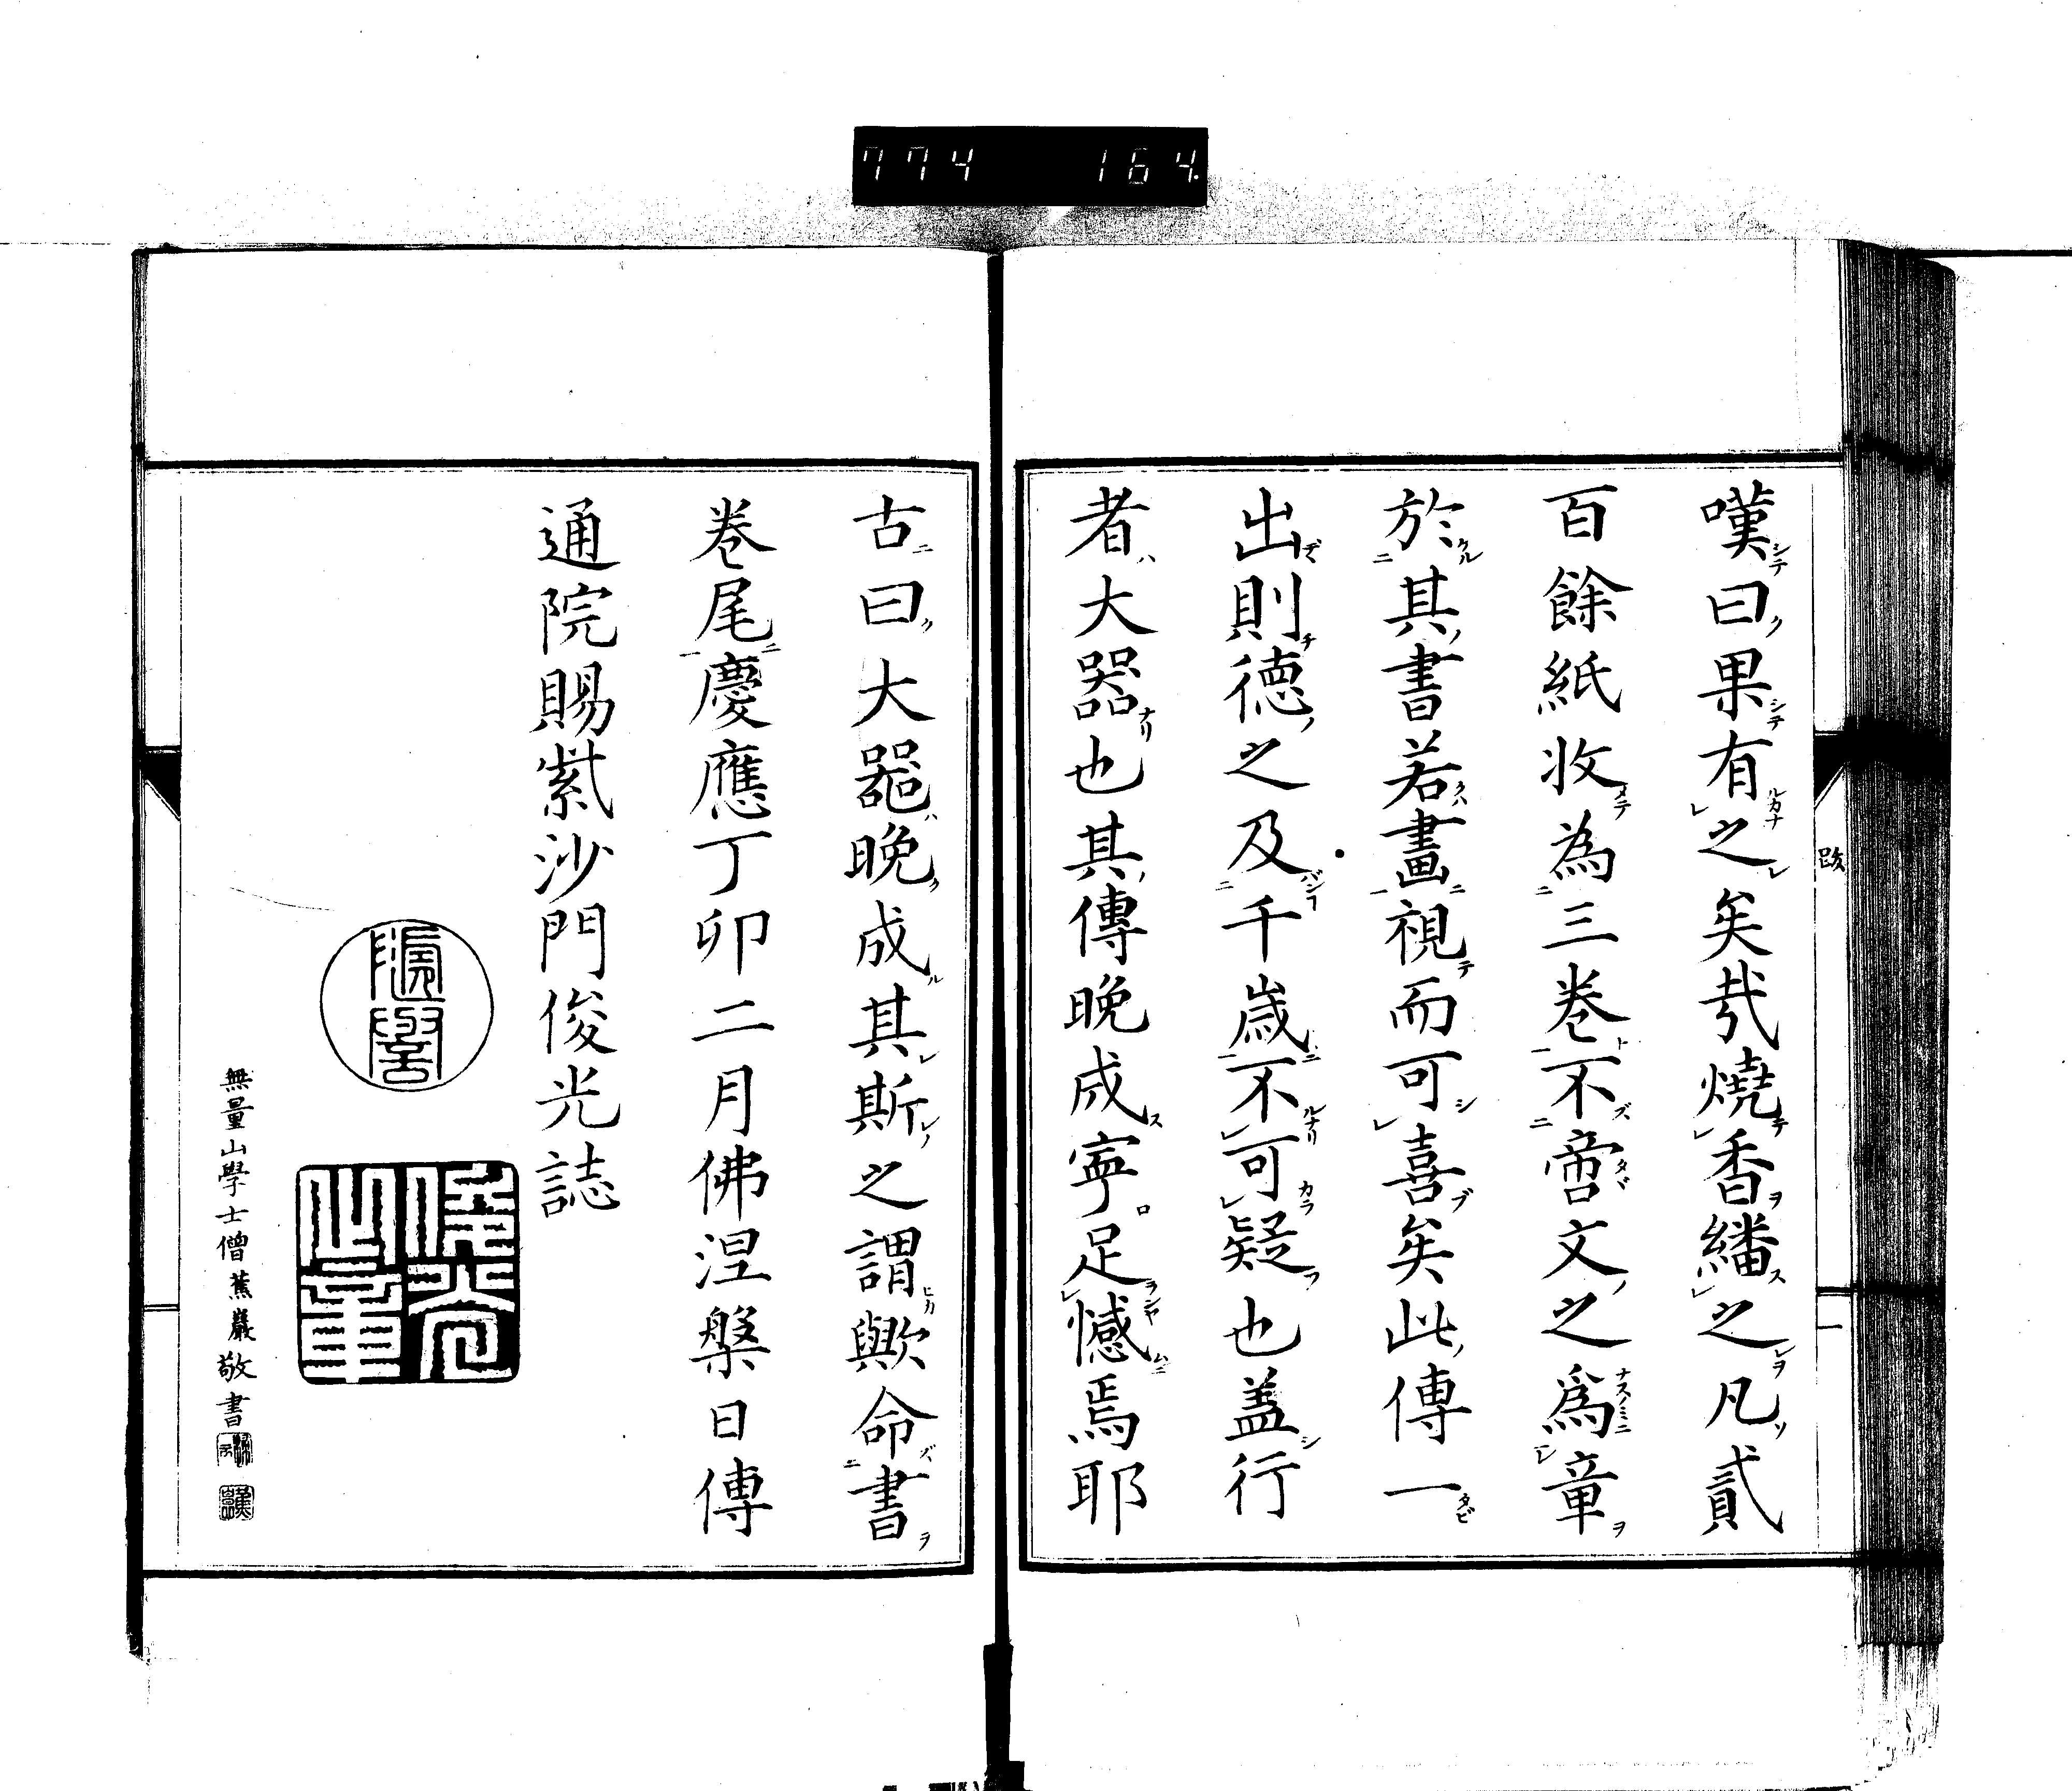 774 164
嘆曰果有之矣哉燒香繙之凡貳
百餘紙收為三卷不啻文之爲章
於其書若畫視而可喜矣此傳一
出則德之及千歳不可疑也盖行
者大器也其傳晚成寧足憾焉耶
古曰大器晚成其斯之謂歟命書
卷尾慶應丁卯二月佛涅槃日傳
通院賜紫沙門俊光誌
無量山學士僧蕉巖敬書
跋
一